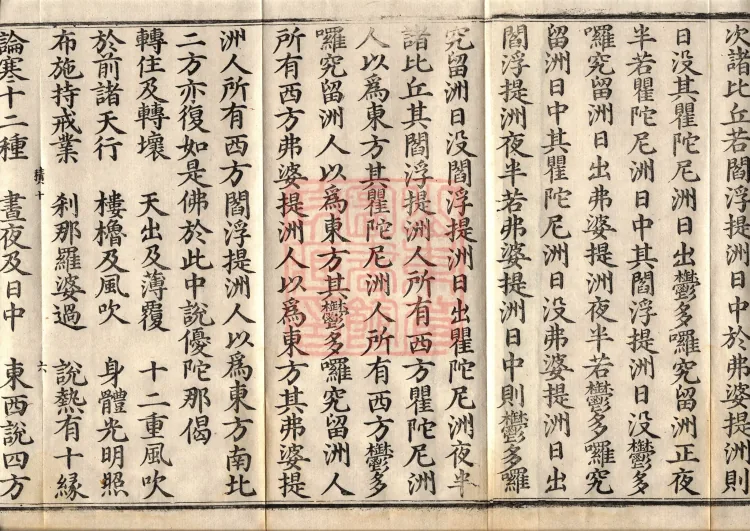 次諸比丘若閻浮提洲日中於弗婆提洲則
日没其瞿陀尼洲日出鬱多囉究留洲正夜
半若瞿陀尼洲日中其閻浮提洲日没鬱多
囉究留洲日出弗婆提洲夜半若鬱多囉究
留洲日中其瞿陀尼洲日没弗婆提洲日出
閻浮提洲夜半若弗婆提洲日中則鬱多囉
究留洲日没閻浮提洲日出瞿陀尼洲夜半
諸比丘其閻浮提洲人所有西方瞿陀尼洲
人以爲東方其瞿陀尼洲人所有西方鬱多
囉究留洲人以爲東方其鬱多囉究留洲人
所有西方弗婆提洲人以爲東方其弗婆提
洲人所有西方閻浮提洲人以爲東方南北
二方亦復如是佛於此中說優陀那偈
轉住及轉壞 天出及薄覆 十二重風吹
於前諸天行 樓櫓及風吹 身體光明照
布施持戒業 刹那羅婆過 說熱有十緣
績十 六
論寒十二種 晝夜及日中 東西說四方